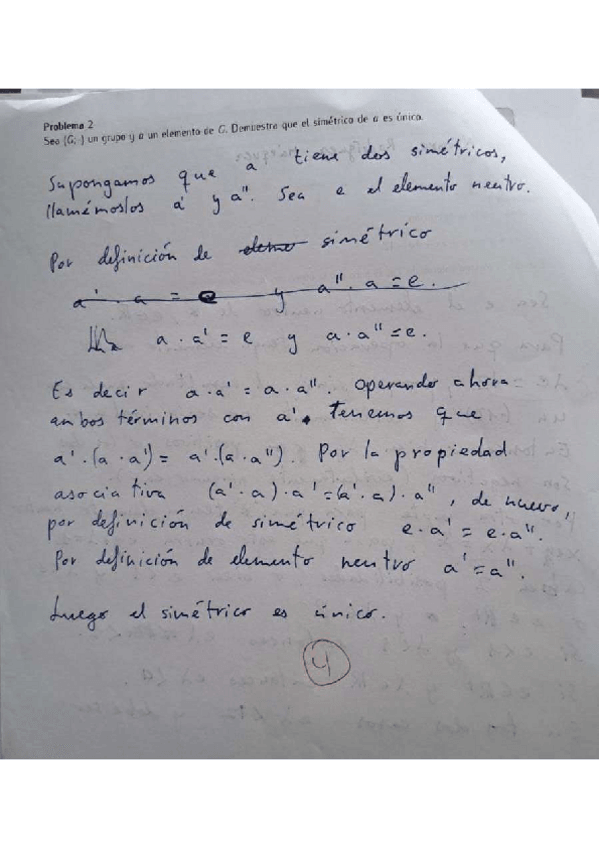 Problema 2
Sea (G; ·) un grupo y a un elemento de G. Demuestra que el simétrico de a es único.
Supongamos que a tiene dos simétricos,
llamémoslos a' y a". Sea e el elemento neutro.
Por definición de elemo simétrico
a' · a = e y a" · a = e.
a · a' = e y a · a" = e.
Es decir a · a' = a · a". Operando ahora
ambos términos con a'. Tenemos que
a' · (a · a') = a' · (a · a"). Por la propiedad
asociativa (a' · a) · a' = (a' · a) · a", de nuevo,
por definición de simétrico e · a' = e · a".
Por definición de elemento neutro a' = a".
Luego el simétrico es único.
4